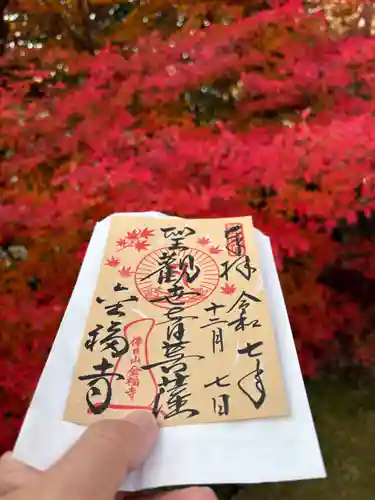 奉拝
令和七年
十二月七日
聖観世音菩薩
金福寺
佛日山
金福寺